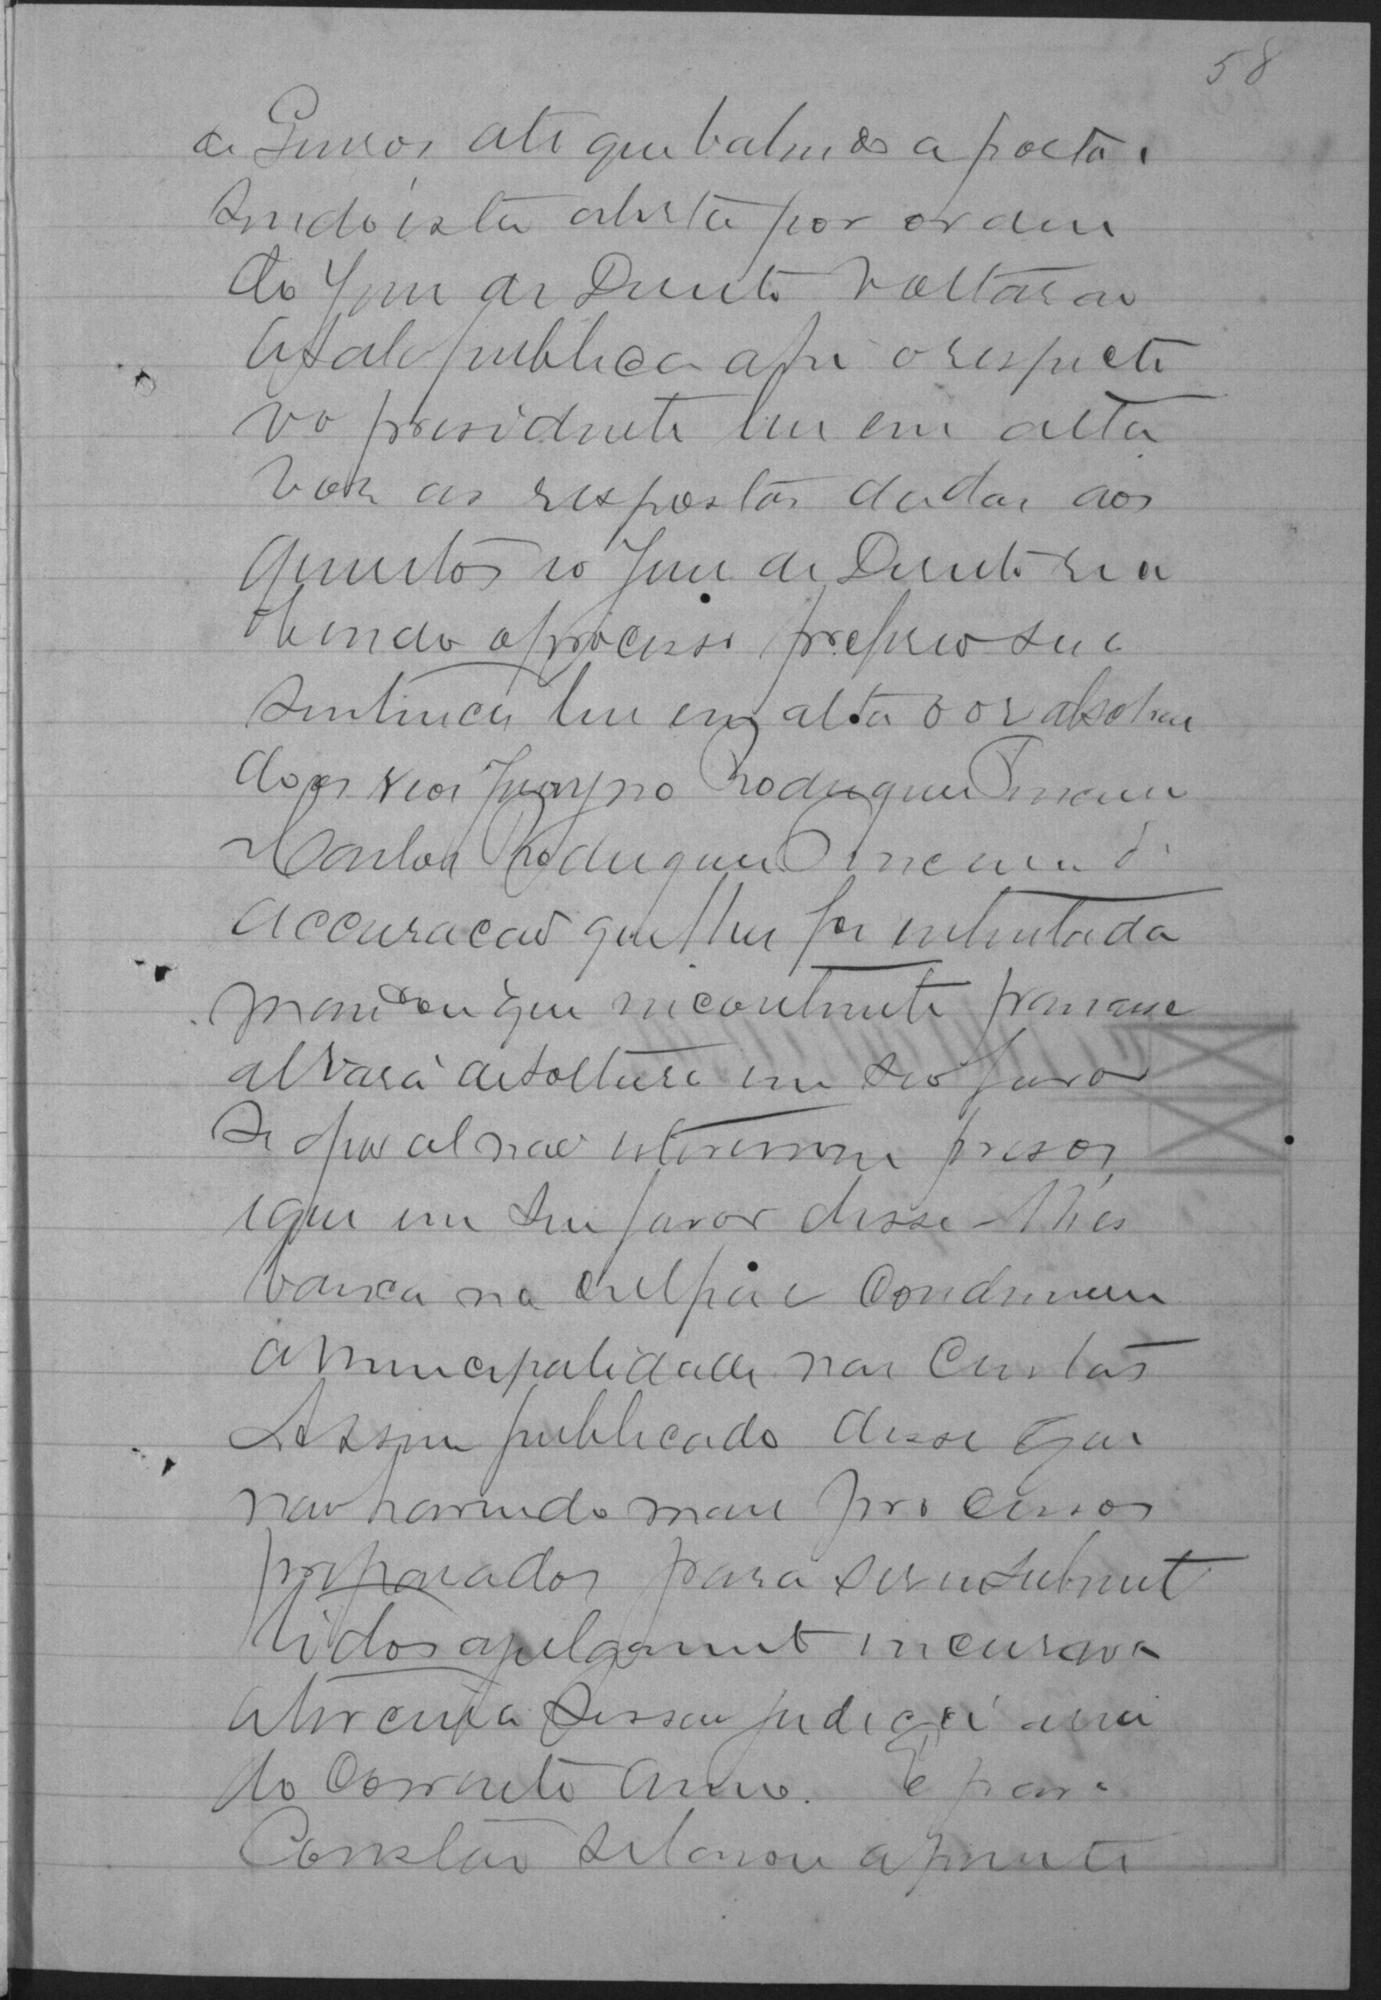 58
de Jurros, até que batendo a porta e
sendo ésta aberta por ordem
do Juiz de Direito voltarão
a sala publica a fin o respecti
vo presidente leu em alta
voz as respostas dadas aos
quesitos e o Juiz de Direito rece
bendo o processo proferio sua
sentença leu em alta voz absolven
do os reos Rodrigues Pimenta
e Carlos Rodrigues Pimenta d'
accusacão que lhes foi intentada
mandou que incontinente passasse
alvará de soltura em seo favor
se por al não estivessem presos
e que em seu favor desse-lhes
baixa na culpa e condemnou
a municipalidade nas custas
Assim publicado disse que
não havendo mais processos
preparados para serem submet
tidos a julgamento encerrava
a terceira sessão judiciaria
do corrente anno. E para
constar se lavrou a presente